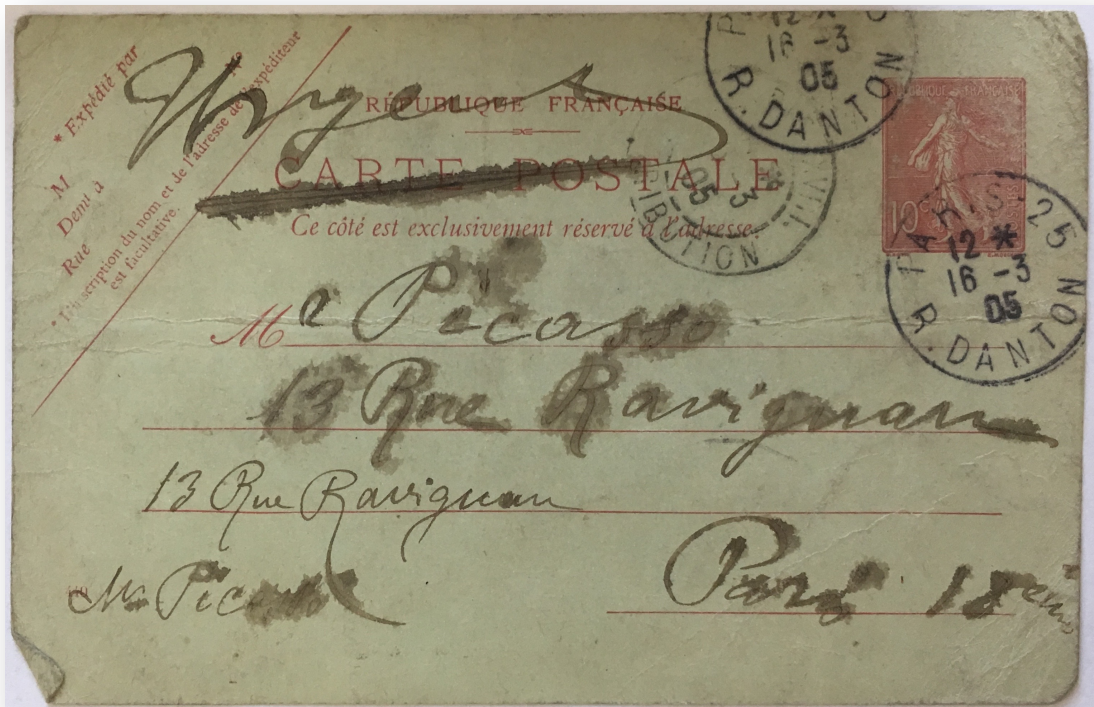 * Expédié par
M
Demt à
Rue
* L'inscription du nom et de l'adresse de l'expéditeur
est facultative.
Urgent
RÉPUBLIQUE FRANÇAISE
CARTE POSTALE
Ce côté est exclusivement réservé à l'adresse.
12 *
16 -3
05
R. DANTON
RÉPUBLIQUE FRANÇAISE
10
3
05
DISTRIBUTION
PARIS·25
12 *
16 -3
05
R. DANTON
Mr Picasso
13 Rue Ravignan
13 Rue Ravignan
Mr Picasso
Paris 18eme